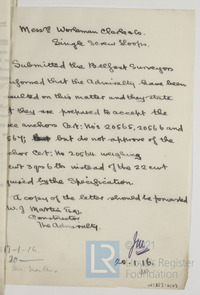 Messrs Workman Clark & Co.
Single Screw Sloops.
Submitted the Belfast Surveyors
informed that the Admiralty have been
consulted on this matter and they state
they are prepared to accept the
anchors Cert. No's 20565, 20566 and
but do not approve of the
Cert. No 20564 weighing
cwt 3 qrs instead of the 22 cwt
by the Specification.
A copy of the letter should be forwarded
W. J. Martin Esq.
Constructor
The Admiralty.
20.1.16.
-1-16